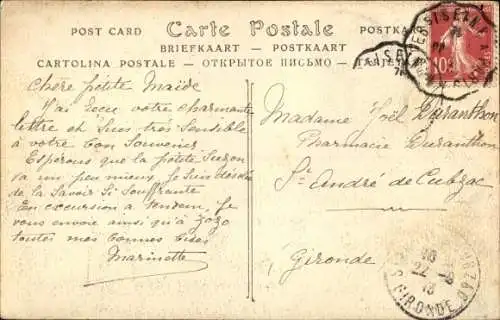 POST CARD Carte Postale POSTKA
BRIEFKAART - POSTKAART
CARTOLINA POSTALE - ОТКРЫТОЕ ПИСЬМО - TARJETA
10
Chère petite Maïde
J'ai Recu votre charmante
lettre et suis très Sensible
à votre bon Souvenir
Esperons que la petite Suzon
va un peu mieux je suis désolée
de la Savoir Si Souffrante
En excursion a je
vous envoie ainsi qu'à Zozo
toutes mes bonnes bises
Marinette
Madame Joël Duranthon
Pharmacie Duranthon
St André de Cubzac
Gironde
18
22 - 8
18
GIRONDE